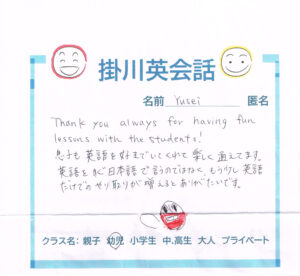 掛川英会話
名前 Yusei 匿名
Thank you always for having fun
lessons with the students!
息子も英語を好きでいてくれて楽しく通えてます。
英語をすぐ日本語で言うのではなく、もう少し英語
だけでのやり取りが増えるとありがたいです。
クラス名: 親子 幼児 小学生 中,高生 大人 プライベート